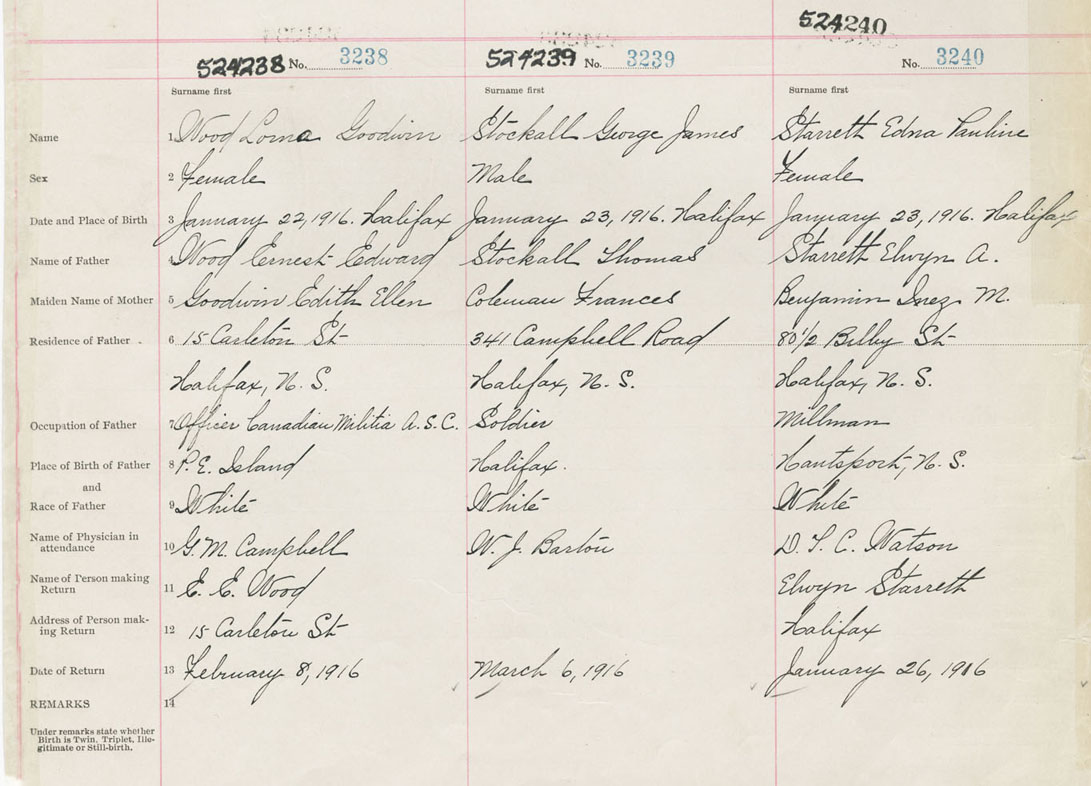 524240
524238 No. 3238 524239 No. 3239 No. 3240
Surname first Surname first Surname first
Name 1 Wood Lorna Goodwin Stockall George James Starreth Edna Pauline
Sex 2 Female Male Female
Date and Place of Birth 3 January 22, 1916. Halifax January 23, 1916. Halifax January 23, 1916. Halifax
Name of Father 4 Wood Ernest Edward Stockall Thomas Starreth Elwyn A.
Maiden Name of Mother 5 Goodwin Edith Ellen Coleman Frances Benjamin Inez M.
Residence of Father 6 15 Carleton St 341 Campbell Road 80 1/2 Bilby St
Halifax, N. S. Halifax, N. S. Halifax, N. S.
Occupation of Father 7 Officer Canadian Militia A. S. C. Soldier Millman
Place of Birth of Father 8 P. E. Island Halifax. Hantsport, N. S.
and
Race of Father 9 White White White
Name of Physician in
attendance 10 G. M. Campbell W. J. Barton D. T. C. Watson
Name of Person making
Return 11 E. E. Wood Elwyn Starreth
Address of Person mak-
ing Return 12 15 Carleton St Halifax
Date of Return 13 February 8, 1916 March 6, 1916 January 26, 1916
REMARKS 14
Under remarks state whether
Birth is Twin, Triplet, Ille-
gitimate or Still-birth.